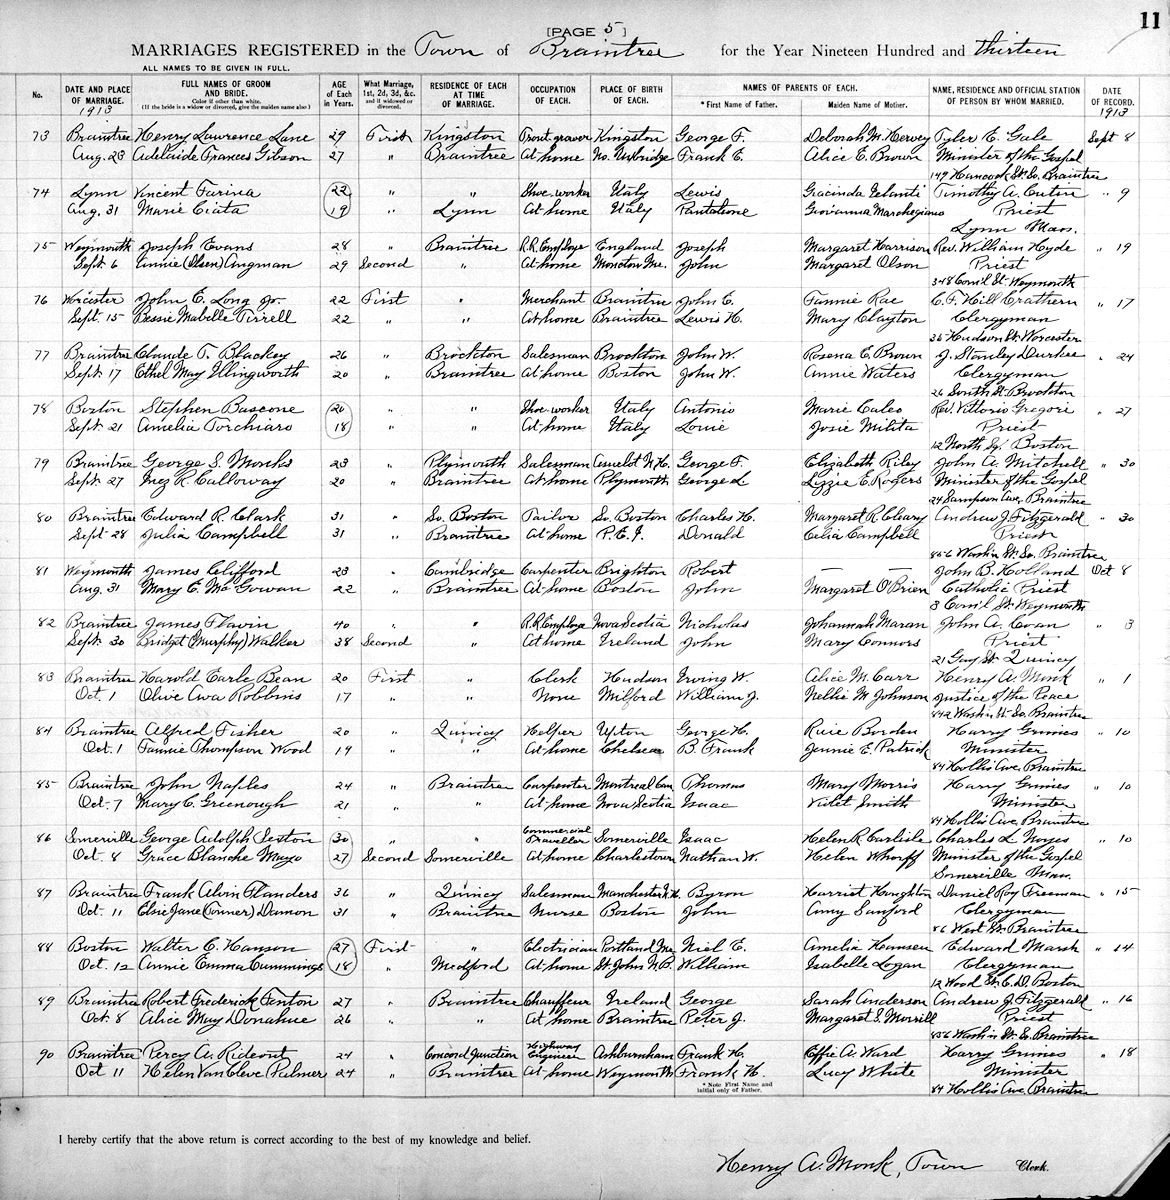 11
[PAGE 5]
MARRIAGES REGISTERED in the Town of Braintree for the Year Nineteen Hundred and thirteen
ALL NAMES TO BE GIVEN IN FULL.
No. DATE AND PLACE OF MARRIAGE. 1913 FULL NAMES OF GROOM AND BRIDE. Color if other than white. (If the bride is a widow or divorced, give the maiden name also) AGE of Each in Years. What Marriage, 1st, 2d, 3d, &c. and if widowed or divorced. RESIDENCE OF EACH AT TIME OF MARRIAGE. OCCUPATION OF EACH. PLACE OF BIRTH OF EACH. NAMES OF PARENTS OF EACH. * First Name of Father. Maiden Name of Mother. NAME, RESIDENCE AND OFFICIAL STATION OF PERSON BY WHOM MARRIED. DATE OF RECORD. 1913
73 Braintree Henry Lawrence Lane 29 First Kingston Kingston George F. Deborah M. Hervey Tyler E. Gale Sept 8
Aug. 23 Adelaide Frances Gibson 27 " Braintree At home No. Uxbridge Frank E. Alice E. Brown Minister of the Gospel
149 Hancock St. So. Braintree
74 Lynn Vincent Farina 22 " " Shoe worker Italy Lewis Gracinda Timothy A. Curtin " 9
Aug. 31 Marie Ciata 19 " Lynn At home Italy Pantaleone Giovanna Marchegiano Priest
Lynn Mass.
75 Weymouth Joseph Evans 28 " Braintree R.R. Employe England Joseph Margaret Harrison Rev. William Hyde " 19
Sept. 6 Annie (Olsen) Angman 29 Second " At home Moncton Me. John Margaret Olson Priest
348 Com'l St. Weymouth
76 Worcester John E. Long Jr. 22 First " Merchant Braintree John E. Fannie Rae C. F. Hill Crathern " 17
Sept. 15 Bessie Mabelle Tirrell 22 " " At home Braintree Lewis H. Mary Clayton Clergyman
25 Hudson St. Worcester
77 Braintree Claude T. Blackey 26 " Brockton Salesman Brockton John W. Rosena E. Brown J. Stanley Durkee " 24
Sept. 17 Ethel May Illingworth 20 " Braintree At home Boston John W. Annie Waters Clergyman
26 South St. Brockton
78 Boston Stephen Bascone 20 " " Shoe worker Italy Antonio Marie Caleo Rev. Vittorio Gregori " 27
Sept. 21 Amelia Torchiaro 18 " " At home Italy Louie Josie Milita Priest
12 North Sq. Boston
79 Braintree George S. Monks 23 " Plymouth Salesman N.H. George F. Elizabeth Riley John A. Mitchell " 30
Sept. 27 Inez R. Calloway 20 " Braintree At home Plymouth George L. Lizzie E. Rogers Minister of the Gospel
24 Sampson Ave. Braintree
80 Braintree Edward R. Clark 31 " So. Boston Tailor So. Boston Charles H. Margaret R. Cleary Andrew J. Fitzgerald " 30
Sept 28 Julia Campbell 31 " Braintree At home P.E.I. Donald Celia Campbell Priest
856 Wash'n St. So. Braintree
81 Weymouth James Clifford 23 " Cambridge Carpenter Brighton Robert — — John B. Holland Oct 8
Aug. 31 Mary E. McGowan 22 " Braintree At home Boston John Margaret O'Brien Catholic Priest
3 Com'l St. Weymouth
82 Braintree James Flavin 40 " " R.R. Employe Nova Scotia Nicholas Johannah Maran John A. Coan " 3
Sept. 30 Bridget (Murphy) Walker 38 Second " At home Ireland John Mary Connors Priest
21 Gay St. Quincy
83 Braintree Harold Earle Bean 20 First " Clerk Hudson Irving W. Alice M. Carr Henry A. Monk " 1
Oct. 1 Olive Ava Robbins 17 " " None Milford William J. Nellie M. Johnson Justice of the Peace
842 Wash'n St. So. Braintree
84 Braintree Alfred Fisher 20 " Quincy Helper Upton George H. Ruie Borden Harry Grimes " 10
Oct. 1 Fannie Thompson Wood 19 " " At home Chelsea B. Frank Jennie E. Patrick Minister
84 Hollis Ave. Braintree
85 Braintree John Naples 24 " Braintree Carpenter Montreal Can. Thomas Mary Morris Harry Grimes " 10
Oct. 7 Mary C. Greenough 21 " " At home Nova Scotia Isaac Violet Smith Minister
84 Hollis Ave. Braintree
86 Somerville George Adolph Sexton 30 " " Commercial Traveller Somerville Isaac Helen R. Carlisle Charles L. Noyes " 10
Oct. 8 Grace Blanche Mayo 27 Second Somerville At home Charlestown Nathan W. Helen Whorff Minister of the Gospel
Somerville Mass.
87 Braintree Frank Alvin Flanders 36 " Quincy Salesman Manchester N.H. Byron Harriet Houghton Daniel Roy Freeman " 15
Oct. 11 Elsie Jane (Conner) Damon 31 " Braintree Nurse Boston John Amy Sanford Clergyman
86 West St. Braintree
88 Boston Walter E. Hanson 27 First " Electrician Portland Me. Niel E. Amelia Hansen Edward Marsh " 14
Oct. 12 Annie Emma Cummings 18 " Medford At home St. John N.B. William Isabelle Logan Clergyman
12 Wood St. C.D. Boston
89 Braintree Robert Frederick Fenton 27 " Braintree Chauffeur Ireland George Sarah Anderson Andrew J. Fitzgerald " 16
Oct. 8 Alice May Donahue 26 " " At home Braintree Peter J. Margaret S. Morrill Priest
856 Wash'n St. So. Braintree
90 Braintree Percy A. Rideout 24 " Concord Junction Highway Engineer Ashburnham Frank H. Effie A. Ward Harry Grimes " 18
Oct 11 Helen Van Cleve Palmer 24 " Braintree At home Weymouth Frank H. Lucy White Minister
84 Hollis Ave. Braintree
* Note First Name and initial only of Father.
I hereby certify that the above return is correct according to the best of my knowledge and belief.
Henry A. Monk, Town Clerk.